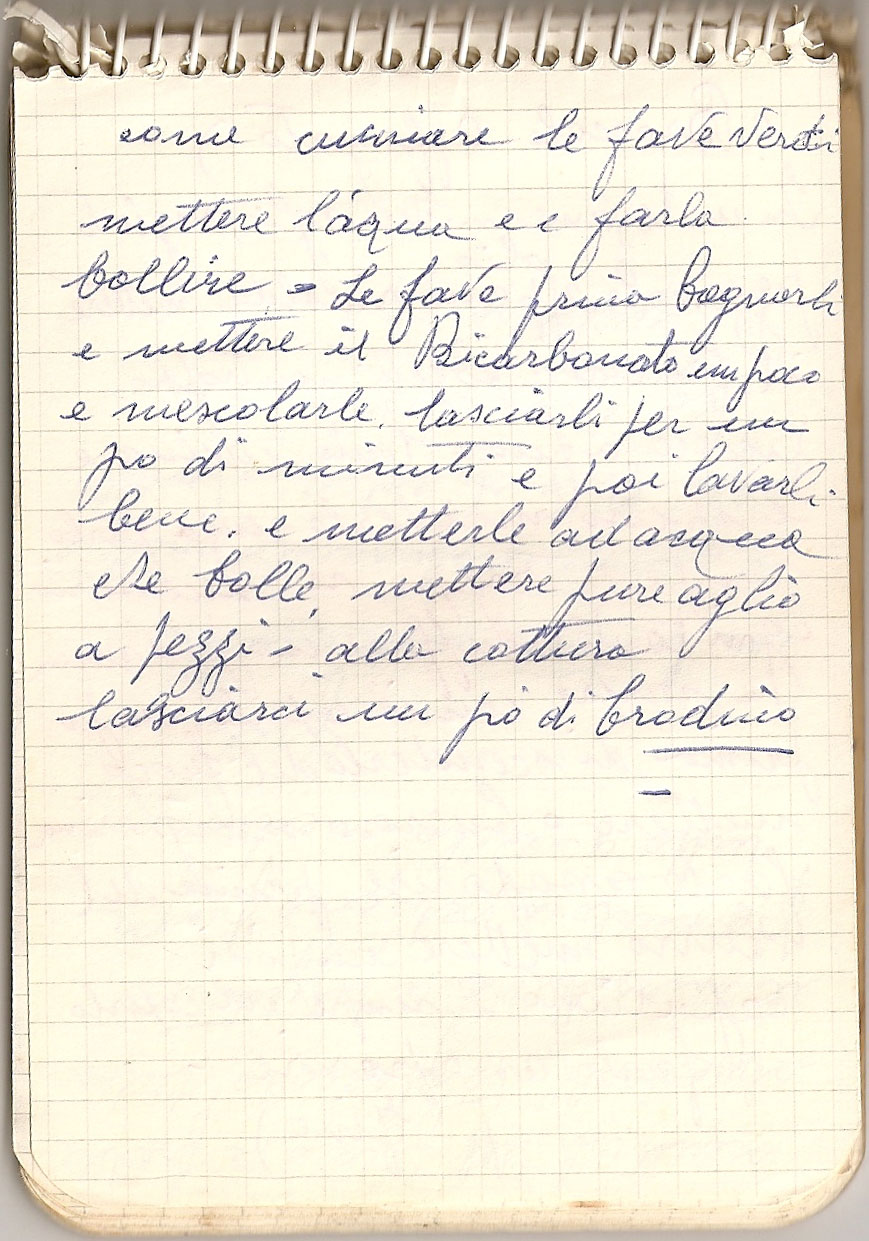 come cucinare le fave verdi
mettere l'aqua e e farla
bollire = Le fave prima bagnarli
e mettere il Bicarbonato un poco
e mescolarle. lasciarli per un
po di minuti e poi lavarli
bene. e metterle ad acqua
che bolle, mettere pure aglio
a pezzi - alla cottura
lasciarci un pò di brodino